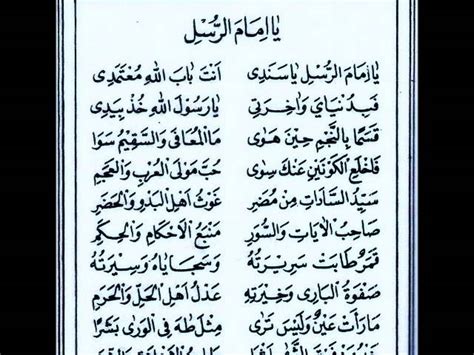 يَا إِمَامَ الرُّسْلِ
يَا إِمَامَ الرُّسْلِ يَا سَنَدِي أَنْتَ بَابُ اللهِ مُعْتَمَدِي
فَبِدُنْيَايَ وَآخِرَتِي يَا رَسُولَ اللهِ خُذْ بِيَدِي
قَسَمًا بِالنَّجْمِ حِينَ هَوَى مَا الْمُعَافَى وَالسَّقِيمُ سَوَا
فَاخْلَعِ الْكَوْنَيْنِ عَنْكَ سِوَى حُبِّ مَوْلَى الْعُرْبِ وَالْعَجَمِ
سَيِّدُ السَّادَاتِ مِنْ مُضَرِ غَوْثُ أَهْلِ الْبَدْوِ وَالْحَضَرِ
صَاحِبُ الْآيَاتِ وَالسُّوَرِ مَنْبَعُ الْأَحْكَامِ وَالْحِكَمِ
قَمَرٌ طَابَتْ سَرِيرَتُهُ وَسَجَايَاهُ وَسِيرَتُهُ
صَفْوَةُ الْبَارِي وَخِيرَتُهُ عَدْلُ أَهْلِ الْحِلِّ وَالْحَرَمِ
مَا رَأَتْ عَيْنٌ وَلَيْسَ تَرَى مِثْلَ طٰهَ فِي الْوَرَى بَشَرًا